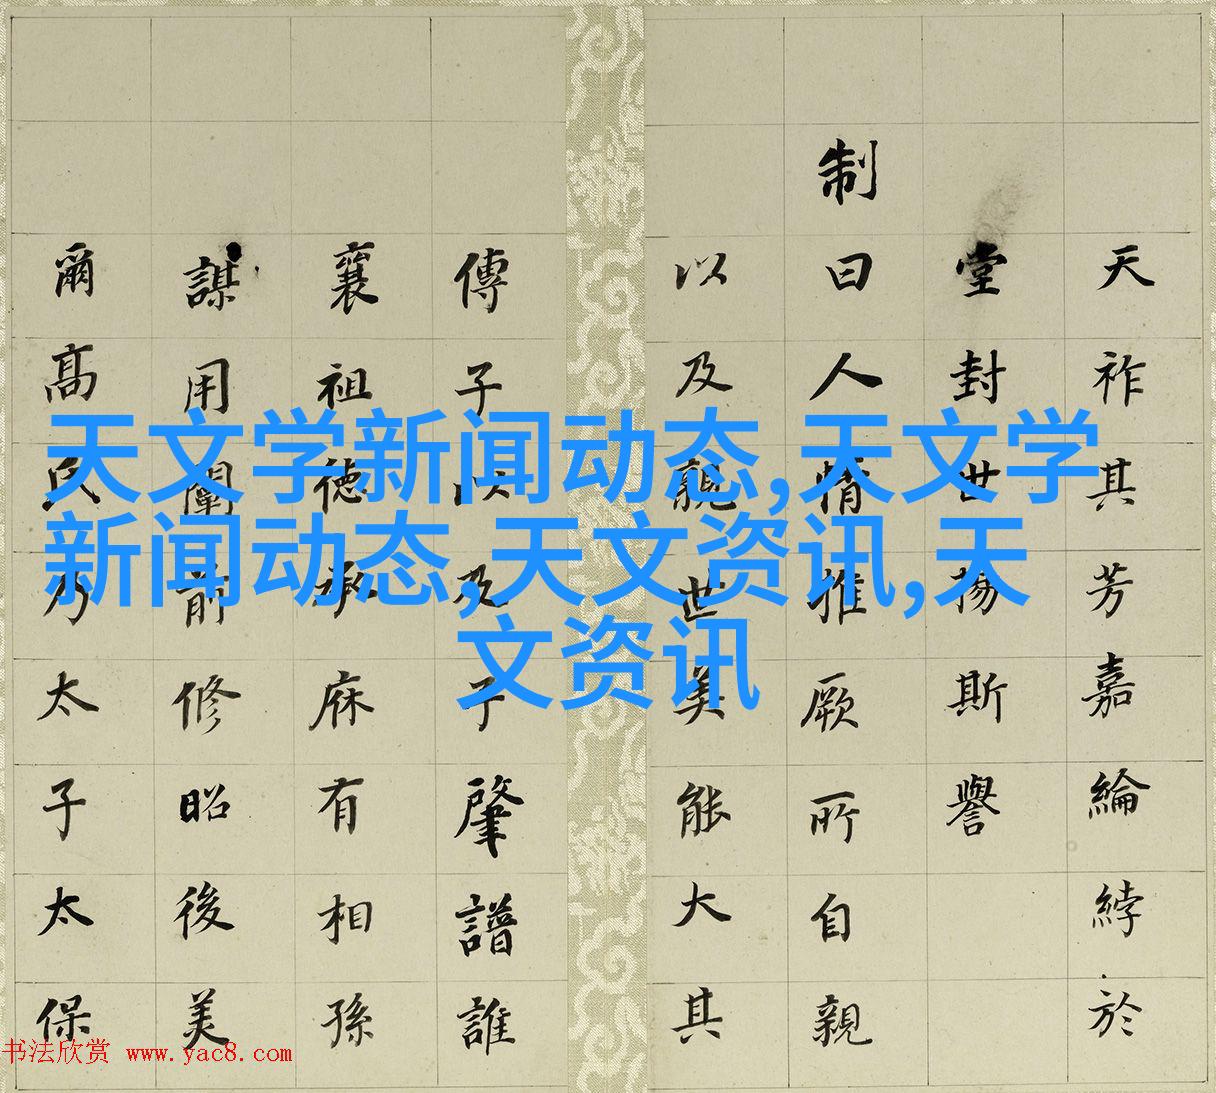 天祚其芳嘉綸綍於
堂封世揚斯譽
制曰人情推厥所自親
以及親世美能大其
傳子以及子肇譜誰
襄祖德承庥有相孫
謀用闡前修昭後美
爾高氏乃太子太保
天文学新闻动态,天文学
新闻动态,天文资讯,天
文资讯
书法欣赏 www.yac8.com